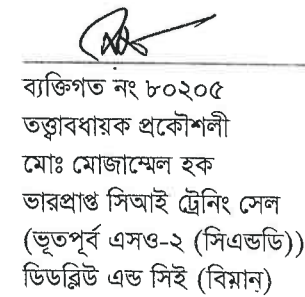 ব্যক্তিগত নং ৮০২০৫
তত্ত্বাবধায়ক প্রকৌশলী
মোঃ মোজাম্মেল হক
ভারপ্রাপ্ত সিআই ট্রেনিং সেল
(ভূতপূর্ব এসও-২ (সিএন্ডডি))
ডিডব্লিউ এন্ড সিই (বিমান)